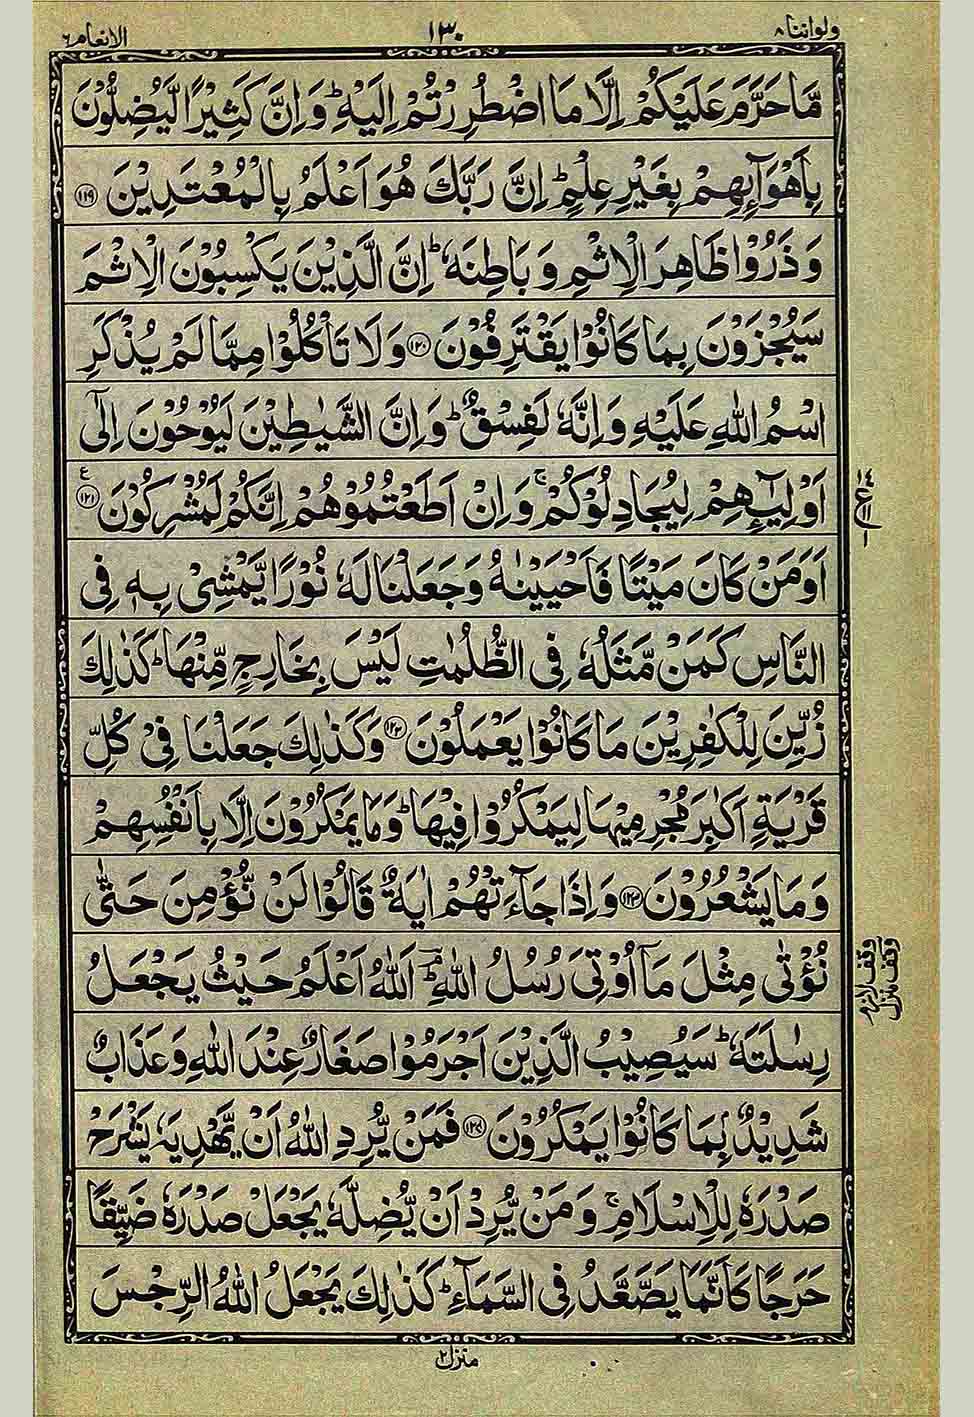 ولواننا ٨
١٣٠
الانعام ٦
مَّا حَرَّمَ عَلَيْكُمْ اِلَّا مَا اضْطُرِرْتُمْ اِلَيْهِ ؕ وَاِنَّ كَثِيْرًا لَّيُضِلُّوْنَ
بِاَهْوَآىِٕهِمْ بِغَيْرِ عِلْمٍ ؕ اِنَّ رَبَّكَ هُوَ اَعْلَمُ بِالْمُعْتَدِيْنَ ﴿١١٩﴾
وَذَرُوْا ظَاهِرَ الْاِثْمِ وَبَاطِنَهٗ ؕ اِنَّ الَّذِيْنَ يَكْسِبُوْنَ الْاِثْمَ
سَيُجْزَوْنَ بِمَا كَانُوْا يَقْتَرِفُوْنَ ﴿١٢٠﴾ وَلَا تَاْكُلُوْا مِمَّا لَمْ يُذْكَرِ
اسْمُ اللّٰهِ عَلَيْهِ وَاِنَّهٗ لَفِسْقٌ ؕ وَاِنَّ الشَّيٰطِيْنَ لَيُوْحُوْنَ اِلٰٓى
اَوْلِيٰٓـِٕهِمْ لِيُجَادِلُوْكُمْ ۚ وَاِنْ اَطَعْتُمُوْهُمْ اِنَّكُمْ لَمُشْرِكُوْنَ ﴿١٢١﴾ ع
اَوَمَنْ كَانَ مَيْتًا فَاَحْيَيْنٰهُ وَجَعَلْنَا لَهٗ نُوْرًا يَّمْشِيْ بِهٖ فِي
النَّاسِ كَمَنْ مَّثَلُهٗ فِي الظُّلُمٰتِ لَيْسَ بِخَارِجٍ مِّنْهَا ؕ كَذٰلِكَ
زُيِّنَ لِلْكٰفِرِيْنَ مَا كَانُوْا يَعْمَلُوْنَ ﴿١٢٢﴾ وَكَذٰلِكَ جَعَلْنَا فِيْ كُلِّ
قَرْيَةٍ اَكٰبِرَ مُجْرِمِيْهَا لِيَمْكُرُوْا فِيْهَا ؕ وَمَا يَمْكُرُوْنَ اِلَّا بِاَنْفُسِهِمْ
وَمَا يَشْعُرُوْنَ ﴿١٢٣﴾ وَاِذَا جَآءَتْهُمْ اٰيَةٌ قَالُوْا لَنْ نُّؤْمِنَ حَتّٰى
نُؤْتٰى مِثْلَ مَآ اُوْتِيَ رُسُلُ اللّٰهِ ؔۘ اَللّٰهُ اَعْلَمُ حَيْثُ يَجْعَلُ
رِسٰلَتَهٗ ؕ سَيُصِيْبُ الَّذِيْنَ اَجْرَمُوْا صَغَارٌ عِنْدَ اللّٰهِ وَعَذَابٌ
شَدِيْدٌۢ بِمَا كَانُوْا يَمْكُرُوْنَ ﴿١٢٤﴾ فَمَنْ يُّرِدِ اللّٰهُ اَنْ يَّهْدِيَهٗ يَشْرَحْ
صَدْرَهٗ لِلْاِسْلَامِ ۚ وَمَنْ يُّرِدْ اَنْ يُّضِلَّهٗ يَجْعَلْ صَدْرَهٗ ضَيِّقًا
حَرَجًا كَاَنَّمَا يَصَّعَّدُ فِي السَّمَآءِ ؕ كَذٰلِكَ يَجْعَلُ اللّٰهُ الرِّجْسَ
وقف لازم
وقف منزل
منزل ٢